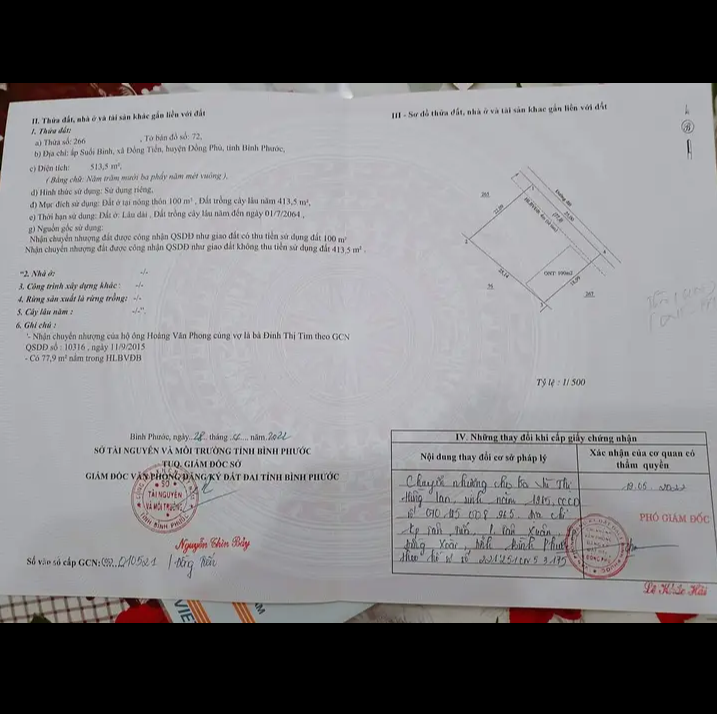 II. Thửa đất, nhà ở và tài sản khác gắn liền với đất
1. Thửa đất:
a) Thửa số: 266 , Tờ bản đồ số: 72,
b) Địa chỉ: ấp Suối Binh, xã Đồng Tiến, huyện Đồng Phú, tỉnh Bình Phước,
c) Diện tích: 513,5 m²,
( Bằng chữ: Năm trăm mười ba phẩy năm mét vuông ),
d) Hình thức sử dụng: Sử dụng riêng,
đ) Mục đích sử dụng: Đất ở tại nông thôn 100 m² , Đất trồng cây lâu năm 413,5 m²,
e) Thời hạn sử dụng: Đất ở: Lâu dài , Đất trồng cây lâu năm đến ngày 01/7/2064 ,
g) Nguồn gốc sử dụng:
Nhận chuyển nhượng đất được công nhận QSDĐ như giao đất có thu tiền sử dụng đất 100 m²
Nhận chuyển nhượng đất được công nhận QSDĐ như giao đất không thu tiền sử dụng đất 413,5 m² .
"2. Nhà ở: -/-
3. Công trình xây dựng khác : -/-
4. Rừng sản xuất là rừng trồng: -/-
5. Cây lâu năm : -/-".
6. Ghi chú :
'- Nhận chuyển nhượng của hộ ông Hoàng Văn Phong cùng vợ là bà Đinh Thị Tim theo GCN
QSDĐ số : 10316 , ngày 11/9/2015
- Có 77,9 m² nằm trong HLBVĐB
Bình Phước, ngày 28 tháng 4 năm 2022
SỞ TÀI NGUYÊN VÀ MÔI TRƯỜNG TỈNH BÌNH PHƯỚC
TUQ. GIÁM ĐỐC SỞ
GIÁM ĐỐC VĂN PHÒNG ĐĂNG KÝ ĐẤT ĐAI TỈNH BÌNH PHƯỚC
SỞ
TÀI NGUYÊN
VÀ MÔI TRƯỜNG
TỈNH BÌNH PHƯỚC
Nguyễn Thìn Bảy
Số vào sổ cấp GCN:
III - Sơ đồ thửa đất, nhà ở và tài sản khác gắn liền với đất
B
265
Đường đất
HLBVĐB
267
Tỷ lệ : 1/ 500
IV. Những thay đổi khi cấp giấy chứng nhận
Nội dung thay đổi cơ sở pháp lý
Xác nhận của cơ quan có
thẩm quyền
Chuyển nhượng cho bà Vũ Thị
sinh năm CCCD
số địa chỉ
Đồng Xoài, tỉnh Bình Phước
theo hồ sơ số
PHÓ GIÁM ĐỐC
Lê Khắc Hải